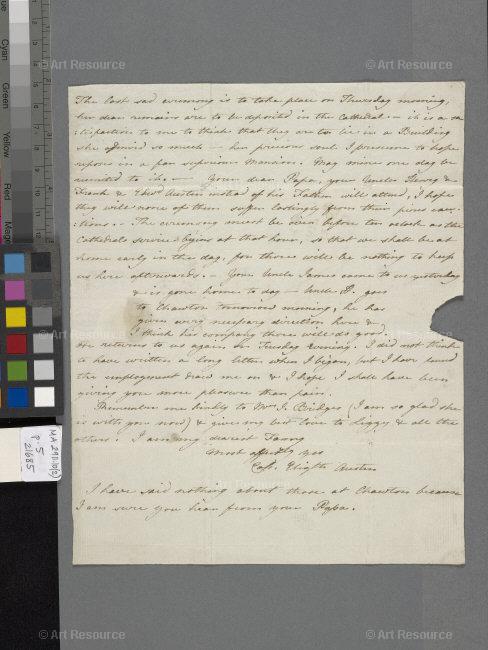 The last sad ceremony is to take place on Thursday morning,
her dear remains are to be deposited in the Cathedral — it is a sa-
tisfaction to me to think that they are to lie in a Building
she admired so much — her precious soul I presume to hope
reposes in a far superior Mansion. May mine one day be
reunited to it. — Your dear Papa, your Uncles Henry &
Frank & Edwd Austen instead of his Father will attend, I hope
they will none of them suffer lastingly from their pious exer-
tions. — The ceremony must be over before ten o'clock as the
Cathedral service begins at that hour, so that we shall be at
home early in the day, for there will be nothing to keep
us here afterwards. — Your Uncle James came to us yesterday
& is gone home to day — Uncle H. goes
to Chawton tomorrow morning, he has
given every necessary direction here &
I think his company there will do good.
He returns to us again on Tuesday evening. I did not think
to have written a long letter when I began, but I have found
the employment draw me on & I hope I shall have been
giving you more pleasure than pain.
Remember me kindly to Mrs J. Bridges (I am so glad she
is with you now) & give my best love to Lizzy & all the
others. I am my dearest Fanny
Most affectly yrs
Cass. Elizth Austen
I have said nothing about those at Chawton because
I am sure you hear from your Papa.
MA 2911
P. 5
21685
Cyan
Green
Yellow
Red
© Art Resource
© Art Resource
© Art Resource
© Art Resource
© Art Resource
© Art Resource
© Art Resource
© Art Resource